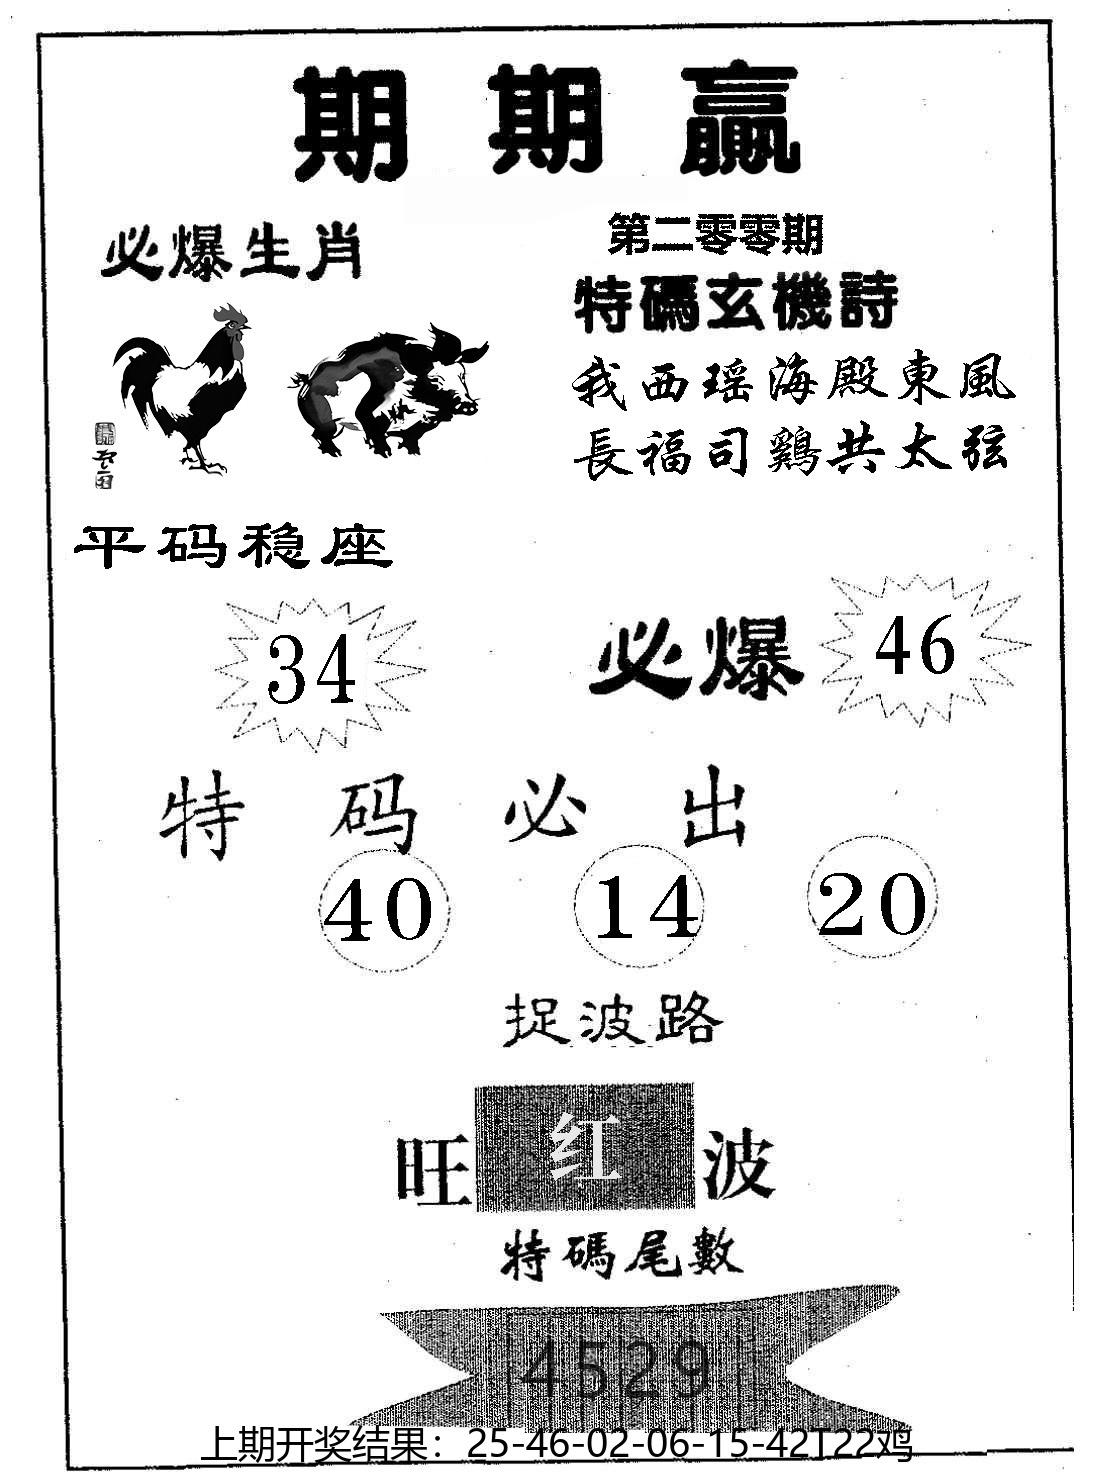 期期贏
必爆生肖
第二零零期
特碼玄機詩
我西瑶海殿東風
長福司鷄共太弦
平码稳座
34
必爆
46
特码必出
40 14 20
捉波路
旺红波
特碼尾數
4529
上期开奖结果：25-46-02-06-15-42T22鸡